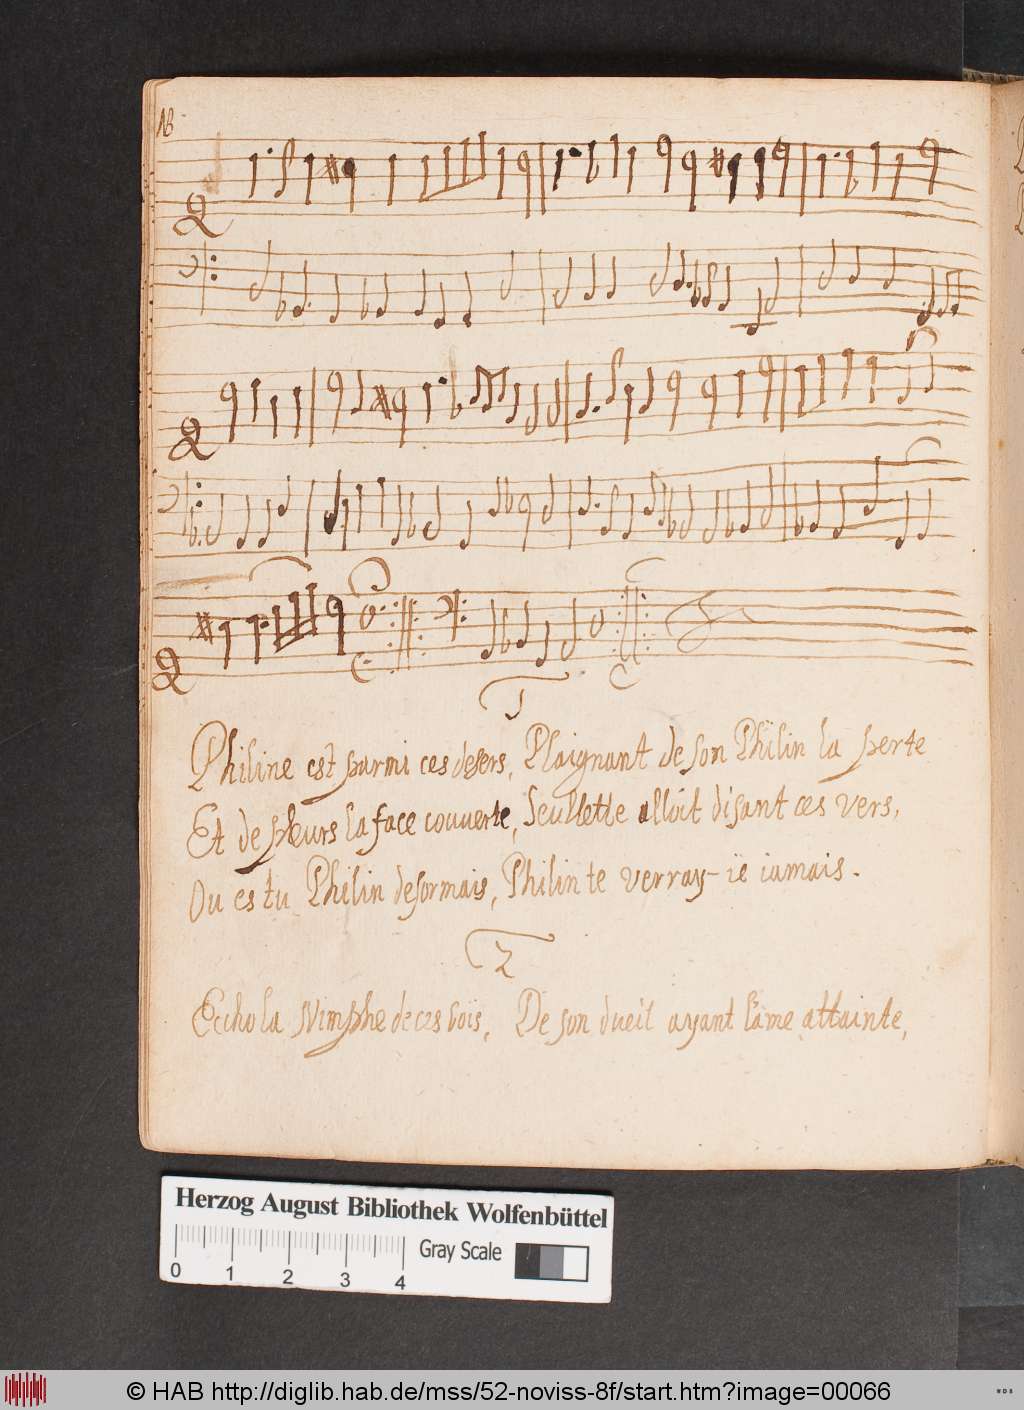 18
1
Philine est parmi ces desers, Plaignant de son Philin la perte
Et de pleurs la face couuerte, Seullette alloit disant ces vers,
Ou es tu Philin desormais, Philin te verray-ie iamais.
2
Eccho la Nimphe de ces bois, De son dueil ayant l'ame attainte,
Herzog August Bibliothek Wolfenbüttel
Gray Scale
0 1 2 3 4
© HAB http://diglib.hab.de/mss/52-noviss-8f/start.htm?image=00066
WDB